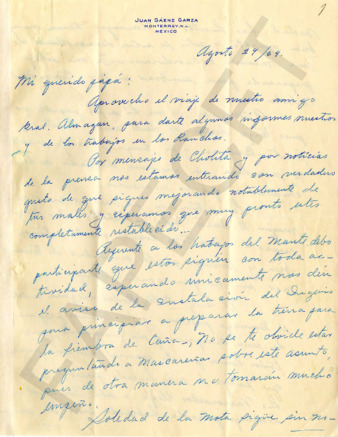 1
JUAN SÁENZ GARZA
MONTERREY, N.L.
MEXICO
Agosto 29/69.
Mi querido papá:
Aprovecho el viaje de nuestro amigo
Gral. Almazán, para darte algunos informes nuestros
y de los trabajos en los Ranchos.
Por mensages de Chotita y por noticias
de la prensa nos estamos enterando con verdadero
gusto de que sigues mejorando notablemente de
tus males y esperamos que muy pronto estes
completamente restablecido...
Referente a los trabajos del Mante debo
participarte que estos siguen con toda ac-
tividad, esperando unicamente nos den
el aviso de la instalacion del Ingenio
para principiar a preparar la tierra para
la siembra de Caña-, No se te olvide estar
preguntando a Mascareñas sobre este asunto,
pues de otra manera no tomarán mucho
empeño.
Soledad de la Mota sigue sin no-